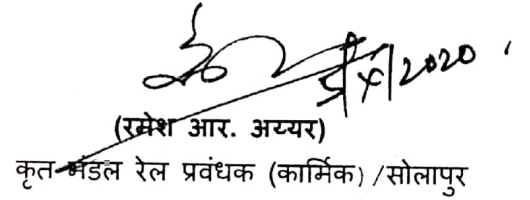 5/X/2020
(रमेश आर. अय्यर)
कृत मंडल रेल प्रवंधक (कार्मिक) /सोलापुर